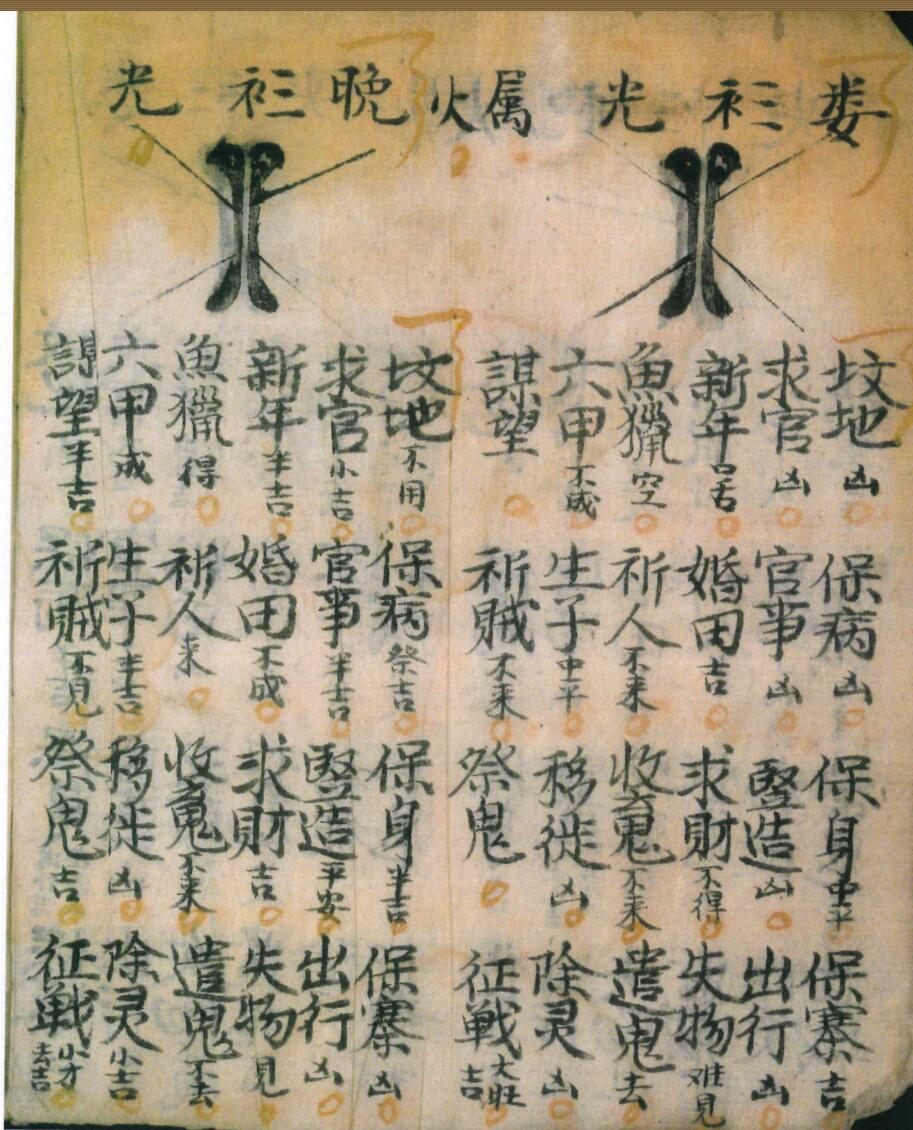 娄 衤三 光
坟地凶 保病凶 保身中平 保寨吉
求官凶 官事凶 竪造凶 出行凶
新年口舌 婚田吉 求財不得 失物难見
魚獵空 祈人不来 收䰟不来 遣鬼去
六甲不成 生子中平 移徙凶 除灵凶
謀望 祈賊不来 祭鬼 征戦大旺吉
火属 晚 衤三 光
坟地不用 保病祭吉 保身半吉 保寨凶
求官小吉 官事半吉 竪造平安 出行凶
新年半吉 婚田不成 求財吉 失物見
魚獵得 祈人来 收䰟不来 遣鬼不去
六甲成 生子半吉 移徙凶 除灵小吉
謀望半吉 祈賊不見 祭鬼吉 征戦小才去吉